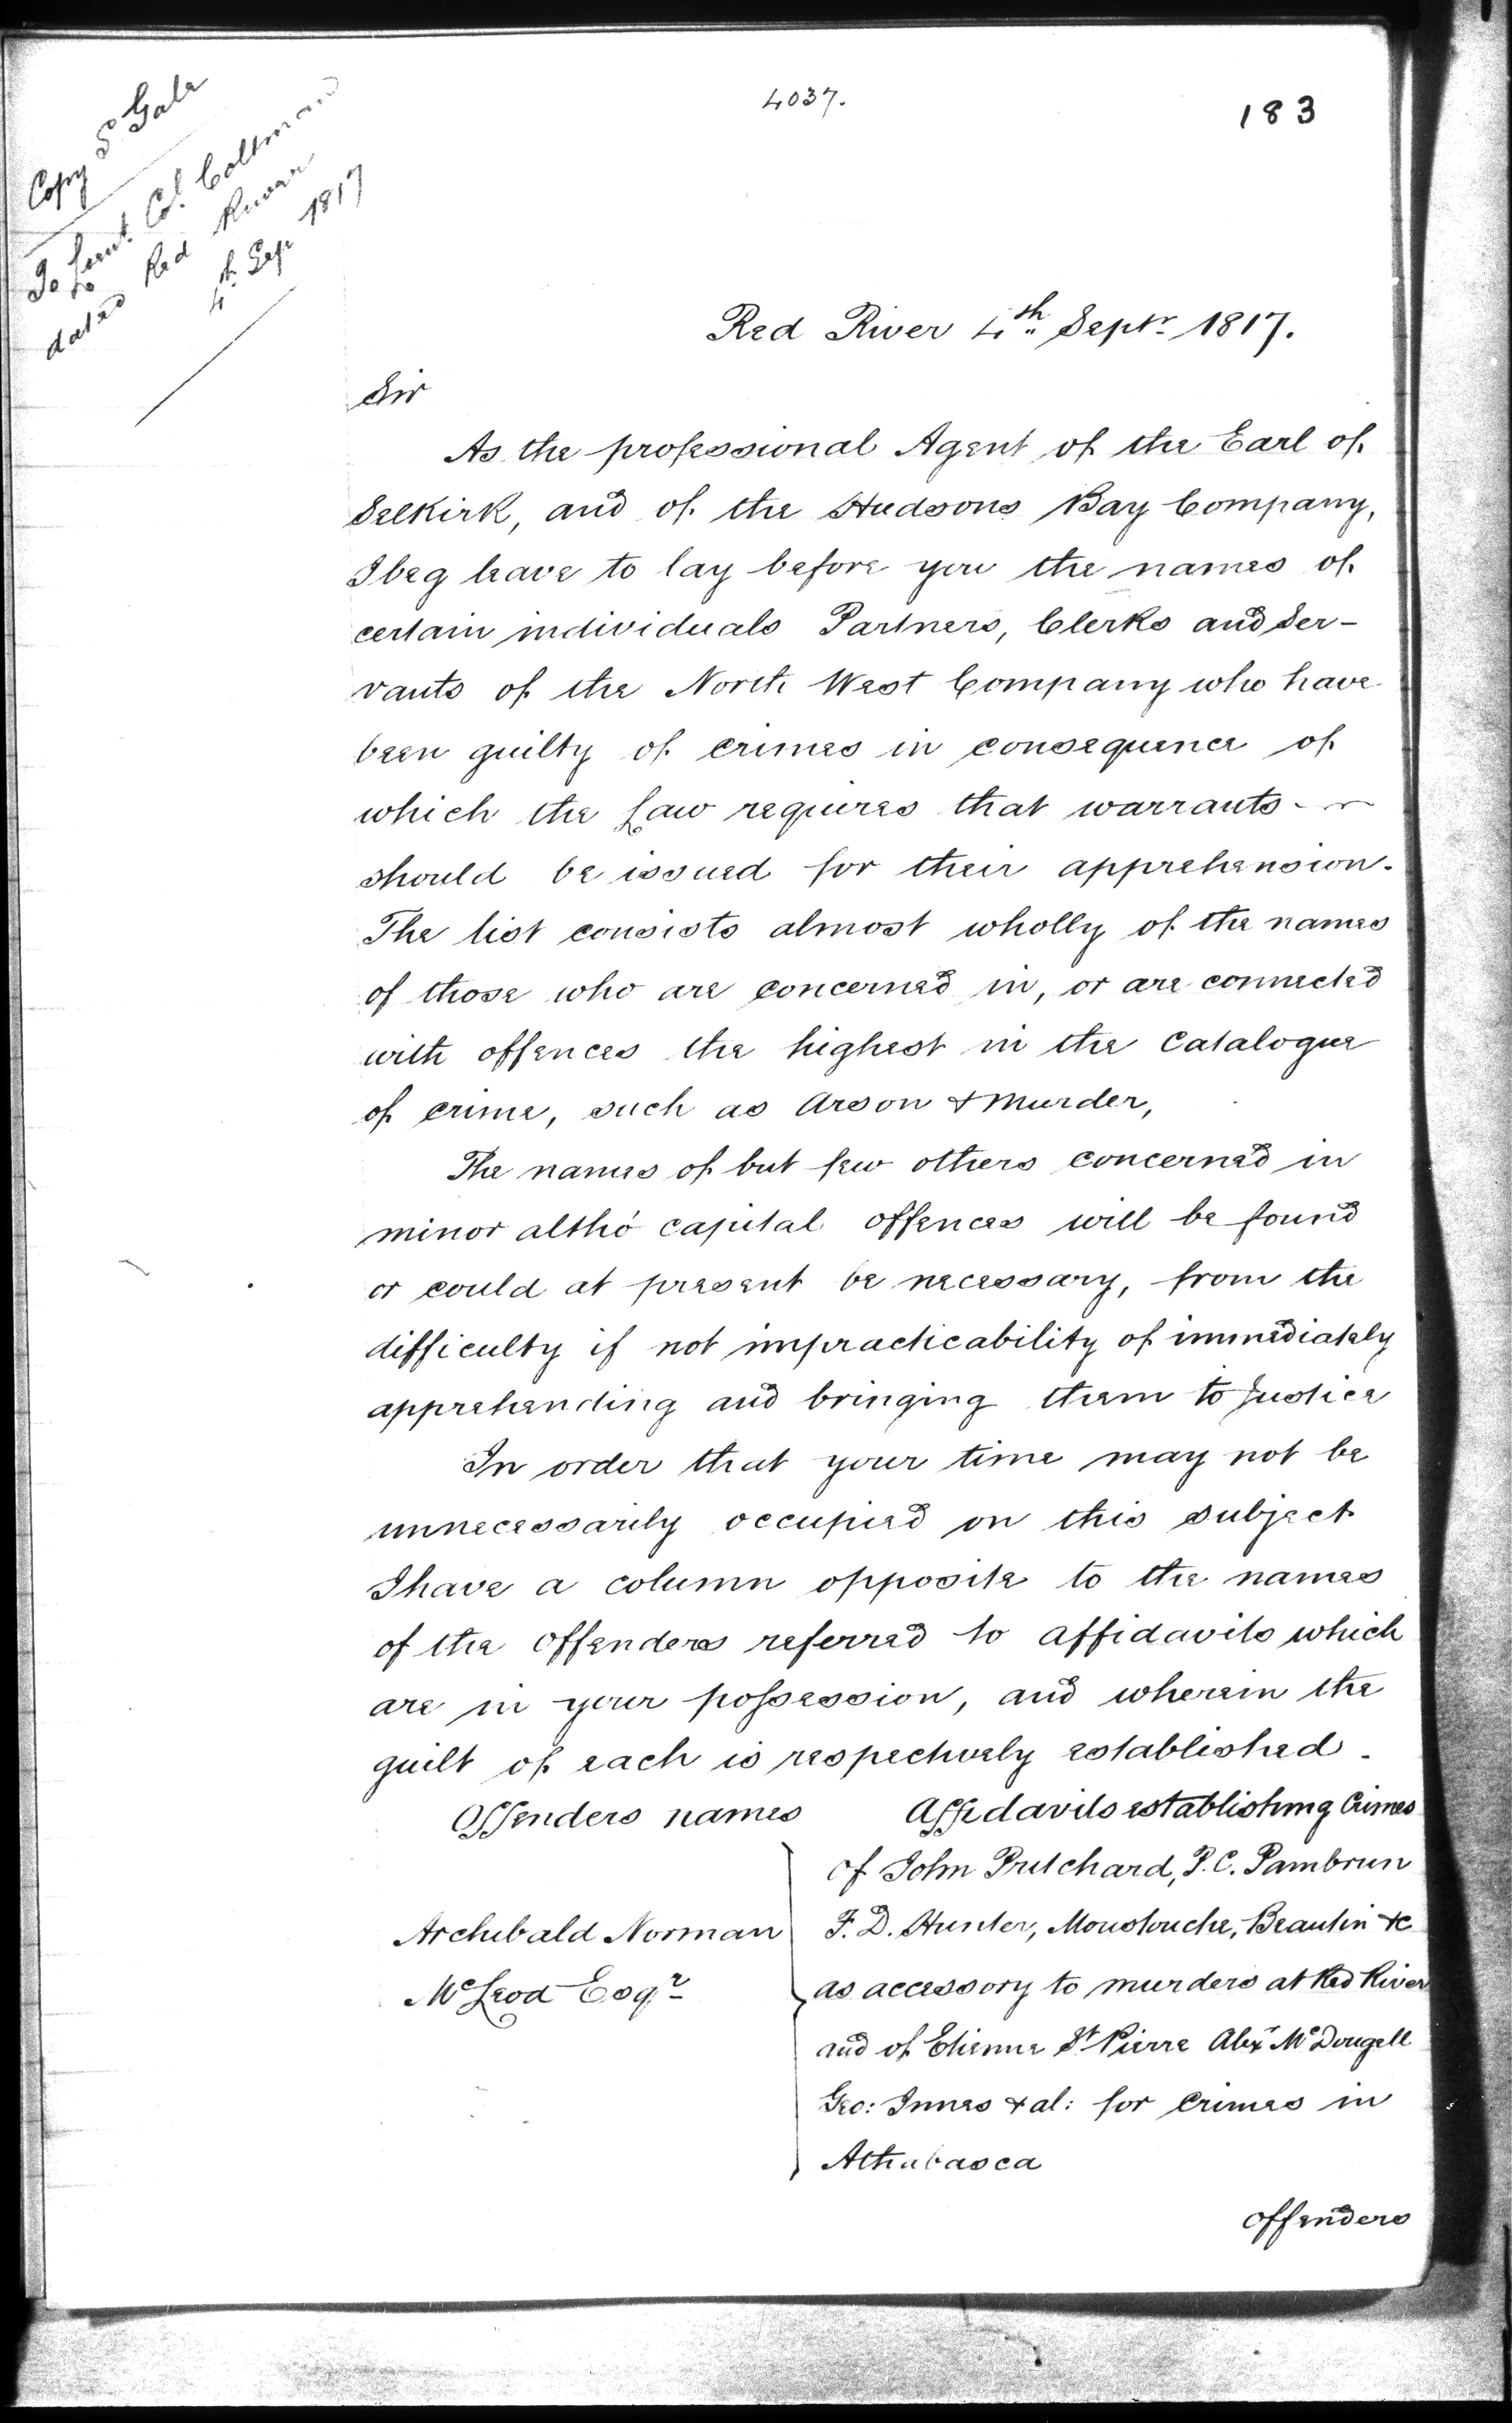 4037.
183
Copy S Gale
To Lieut. Col. Coltman
dated Red River
4th. Sep 1817
Red River 4th. Septr 1817.
Sir
As the professional Agent of the Earl of
Selkirk, and of the Hudsons Bay Company,
I beg leave to lay before you the names of
certain individuals Partners, Clerks and Ser-
vants of the North West Company who have
been guilty of crimes in consequence of
which the Law requires that warrants
should be issued for their apprehension.
The list consists almost wholly of the names
of those who are concerned in, or are connected
with offences the highest in the Catalogue
of crime, such as Arson & Murder,
The names of but few others concerned in
minor altho' capital offences will be found
or could at present be necessary, from the
difficulty if not impracticability of immediately
apprehending and bringing them to Justice
In order that your time may not be
unnecessarily occupied on this subject
I have a column opposite to the names
of the offenders referred to affidavits which
are in your possession, and wherein the
guilt of each is respectively established.
Offenders names Affidavits establishing Crimes
of John Pritchard, P. C. Pambrun
Archibald Norman F. D. Hunter, Moustouche, Beaulin &c
McLeod Esqr as accessory to murders at Red River
and of Etienne St Pierre Alexr McDougell
Geo: Innes & al: for crimes in
Athabasca
offenders